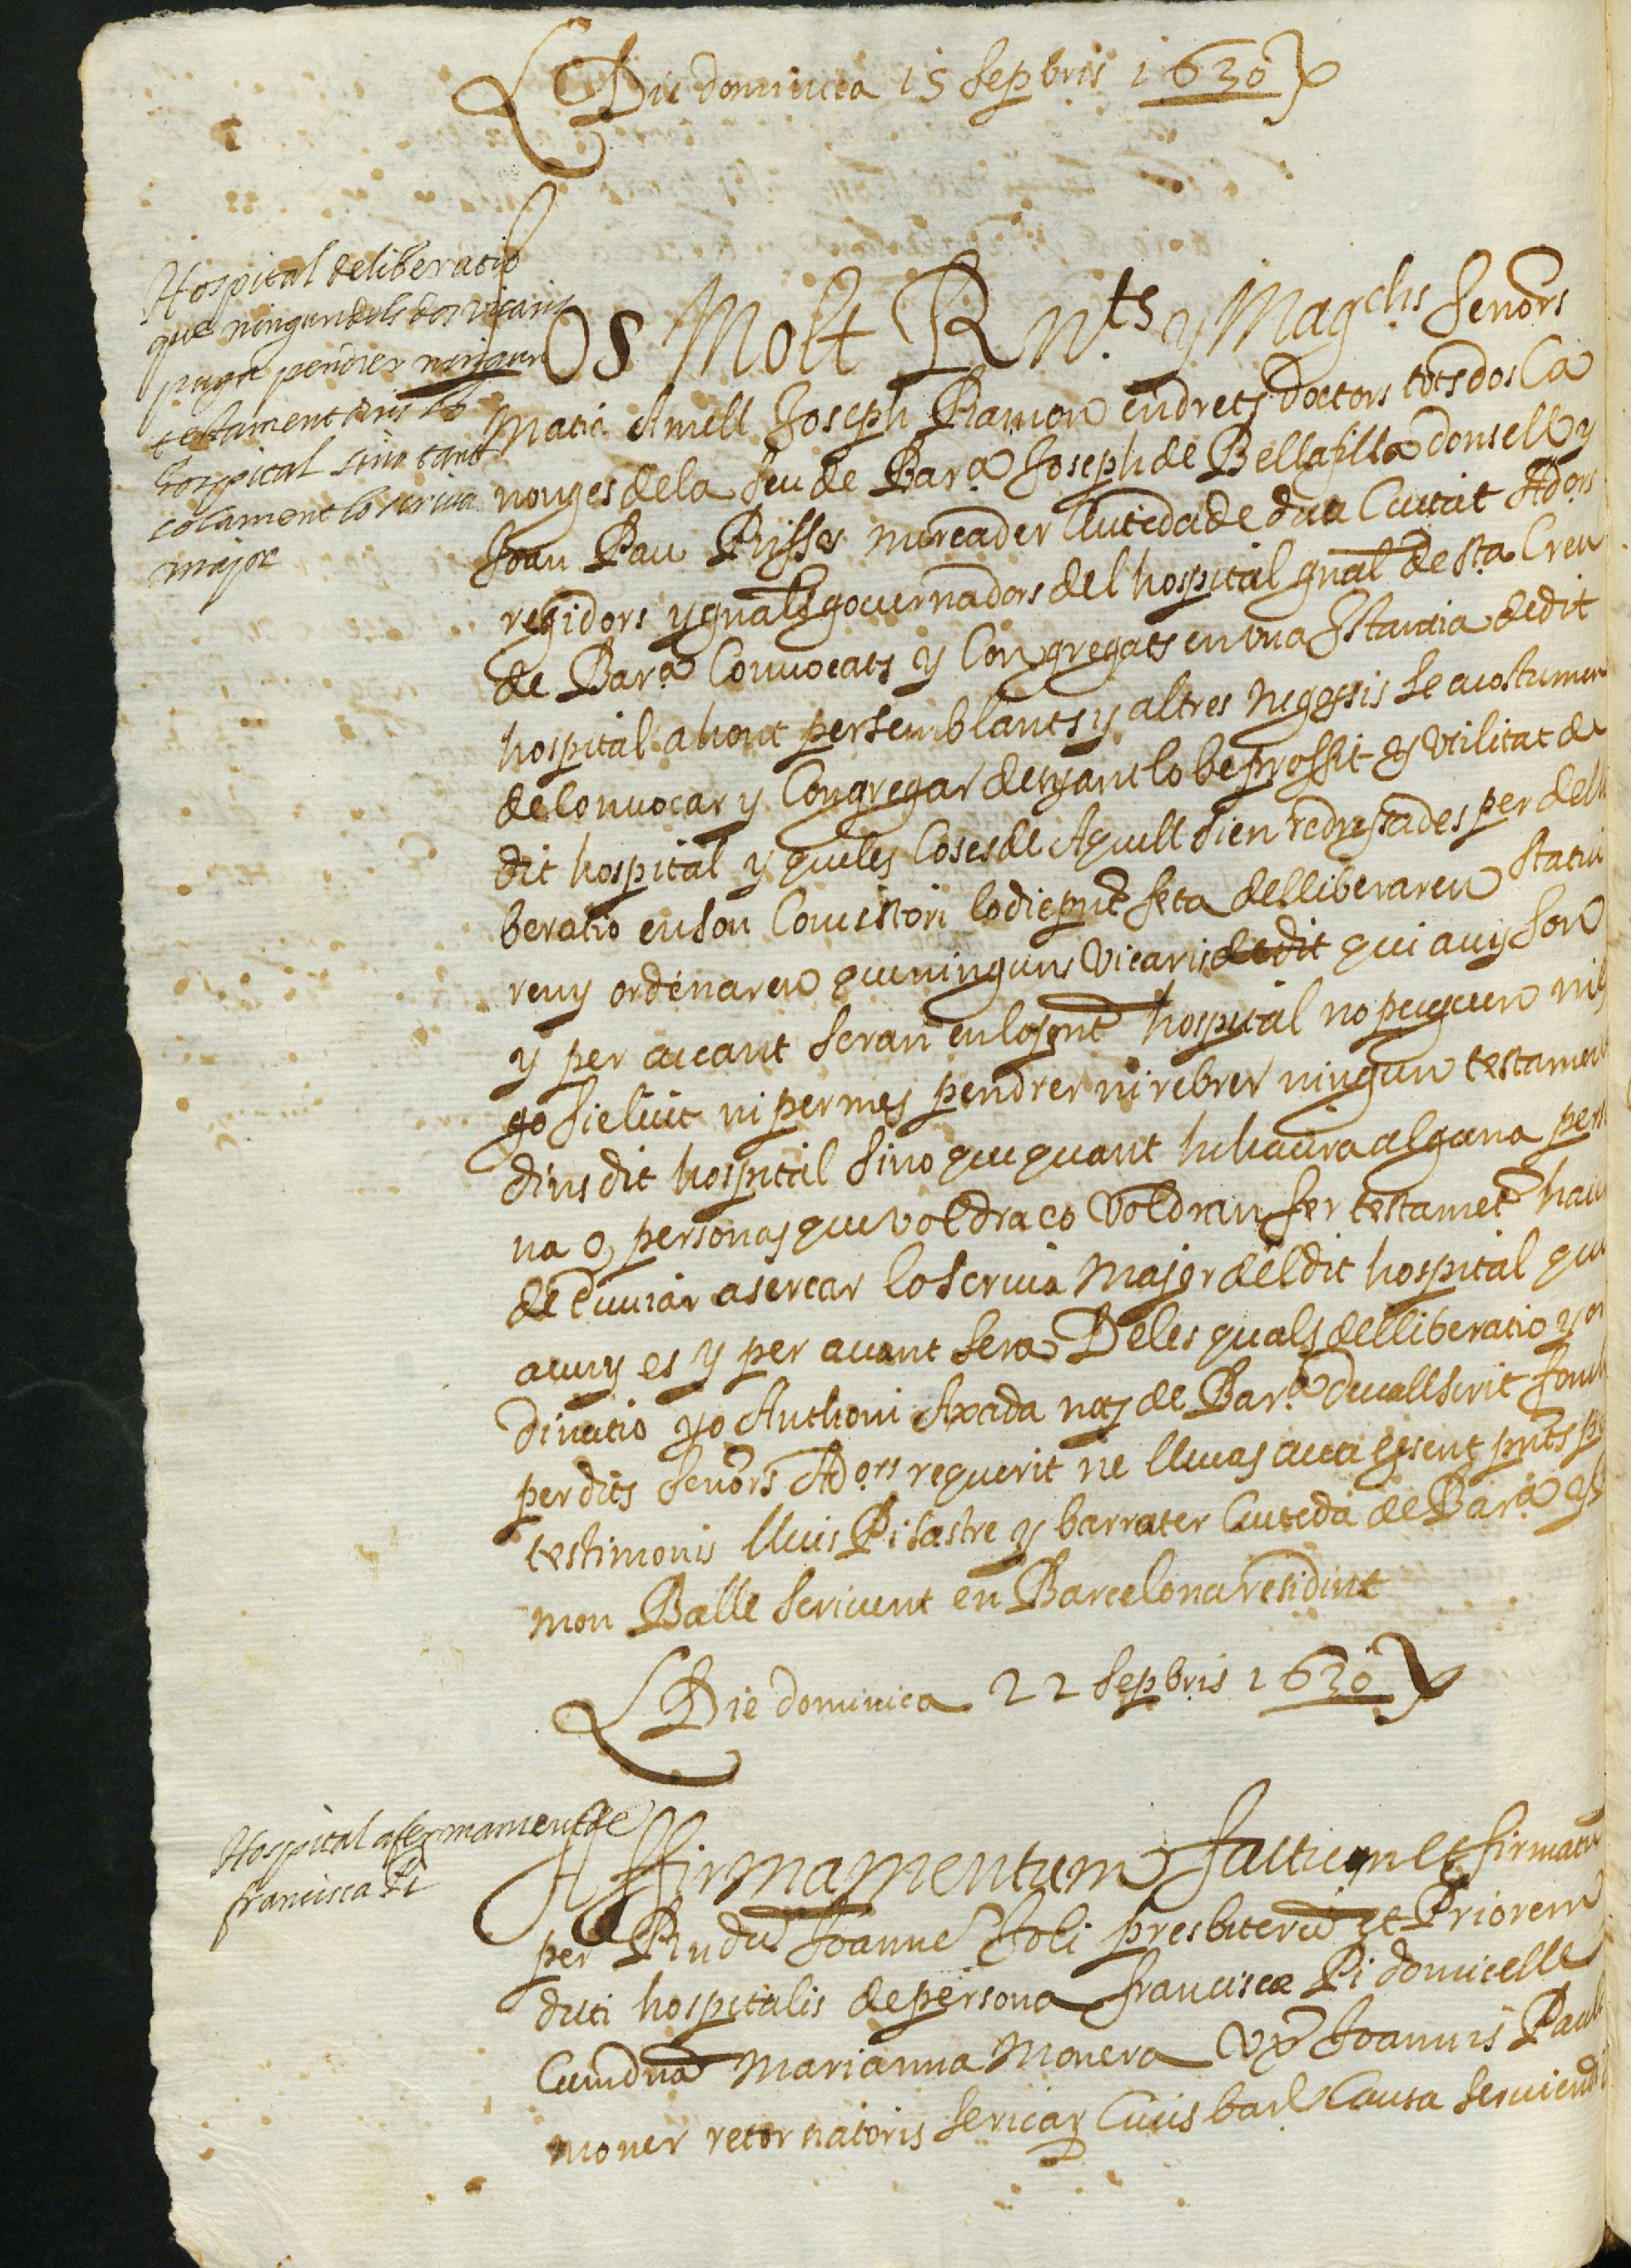 Die dominica 15 Sepbris 1630
Hospital deliberatio
que ningun dels dos vicaris
puga pendrer ningun
testament dins lo
hospital sino tant
solament lo scriva
major
Los Molt Rnts y Magchs senors
Macia Amell Joseph Ramon en drets doctors tots dos Ca
nonges de la Seu de Bara Joseph de Bellafilla donsell y
Joan Pau Risses mercader Ciuteda de dita Ciutat Adors
regidors y gnals gouernadors del hospital gnal de sta Creu
de Bara Conuocats y Congregats en vna Istancia de dit
hospital ahont per semblants y altres negossis se acostumen
de Conuocar y Congregar desijant lo be proffit y vtilitat de
dit hospital y que les Coses de Aquell sien redressades per deli
beratio en son Concistori lo die pnt feta delliberaren statui
ren y ordenaren que ninguns Vicaris de dit qui auy son
y per auant seran en lo pnt hospital no puguen ni ls
go sie licit ni permes pendrer ni rebrer ningun testament
dins dit hospital sino que quant hi haura alguna perso
na o personas que voldra co voldran fer testamet hau
de enuiar a sercar lo scriua Major del dit hospital qui
auuy es y per auant sera De les quals delliberatio y or
dinatio yo Anthoni Axada not de Bara deuall scrit fonch
per dits senors Adors requerit ne lleuas acta essent pnts per
testimonis lluis Pi sastre y barrater Ciuteda de Bara y
mon Balle scriuent en Barcelona residint
Die dominica 22 Sepbris 1630
Hospital afermament de
francisca Pi
Affirmamentum factum et firmatu
per Rndu Joanne Joli presbiteru et Priorem
dicti hospitalis de persona francisca Pi domicelle
Cum dna Marianna Monera Vxr Joannis Pauli
moner retornatoris sericar Ciuis bar Causa seruiendi